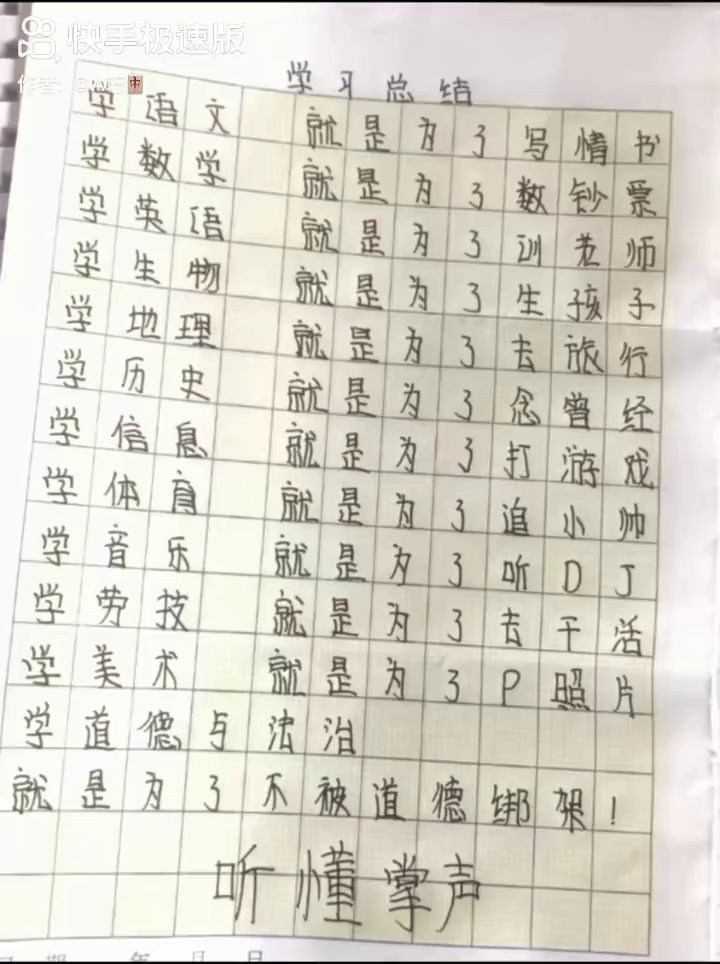 快手极速版
学习总结
学语文 就是为了写情书
学数学 就是为了数钞票
学英语 就是为了训老师
学生物 就是为了生孩子
学地理 就是为了去旅行
学历史 就是为了念曾经
学信息 就是为了打游戏
学体育 就是为了追小帅
学音乐 就是为了听DJ
学劳技 就是为了去干活
学美术 就是为了P照片
学道德与法治
就是为了不被道德绑架！
听懂掌声
年 月 日